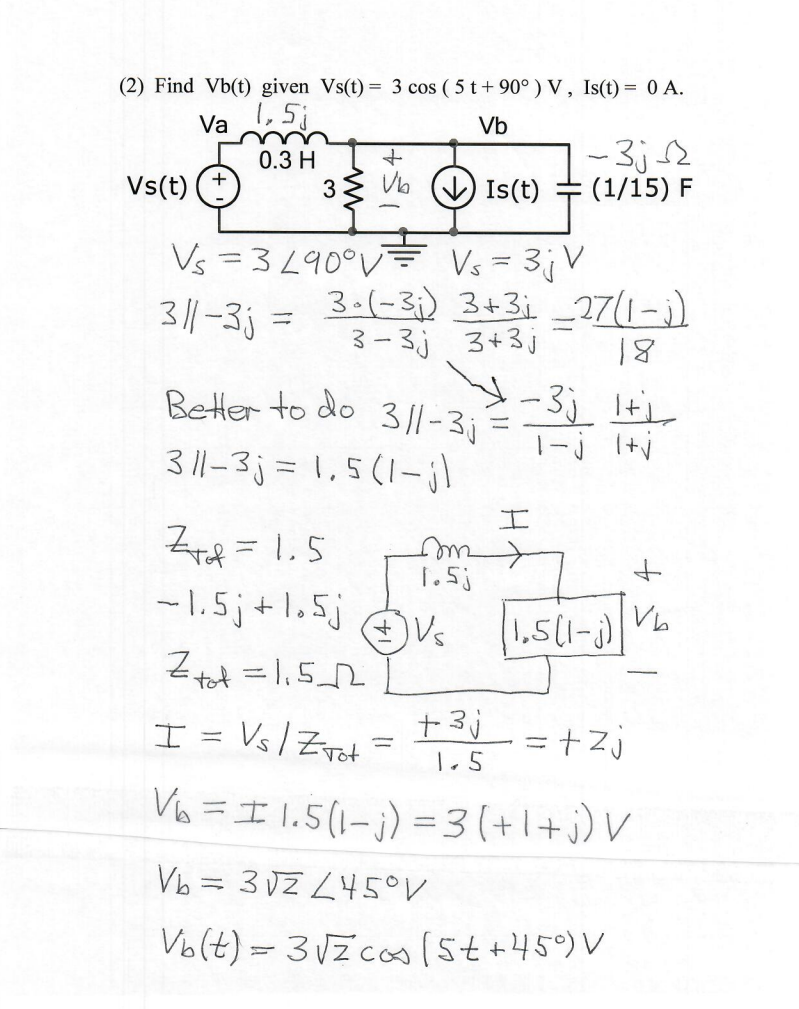 (2) Find Vb(t) given Vs(t) = 3 cos ( 5 t + 90° ) V , Is(t) = 0 A.
Va 1.5j Vb
0.3 H + -3j Ω
Vs(t) + - 3 Vb Is(t) (1/15) F
-
Vs = 3 ∠90° V Vs = 3j V
3||-3j = 3·(-3j)/(3-3j) (3+3j)/(3+3j) = 27(1-j)/18
Better to do 3||-3j = -3j/(1-j) (1+j)/(1+j)
3||-3j = 1.5(1-j)
I
ZTot = 1.5
1.5j +
-1.5j + 1.5j + - Vs 1.5(1-j) Vb
Ztot = 1.5 Ω -
I = Vs/ZTot = +3j/1.5 = +2j
Vb = I 1.5(1-j) = 3(+1+j) V
Vb = 3√2 ∠45° V
Vb(t) = 3√2 cos(5t+45°) V